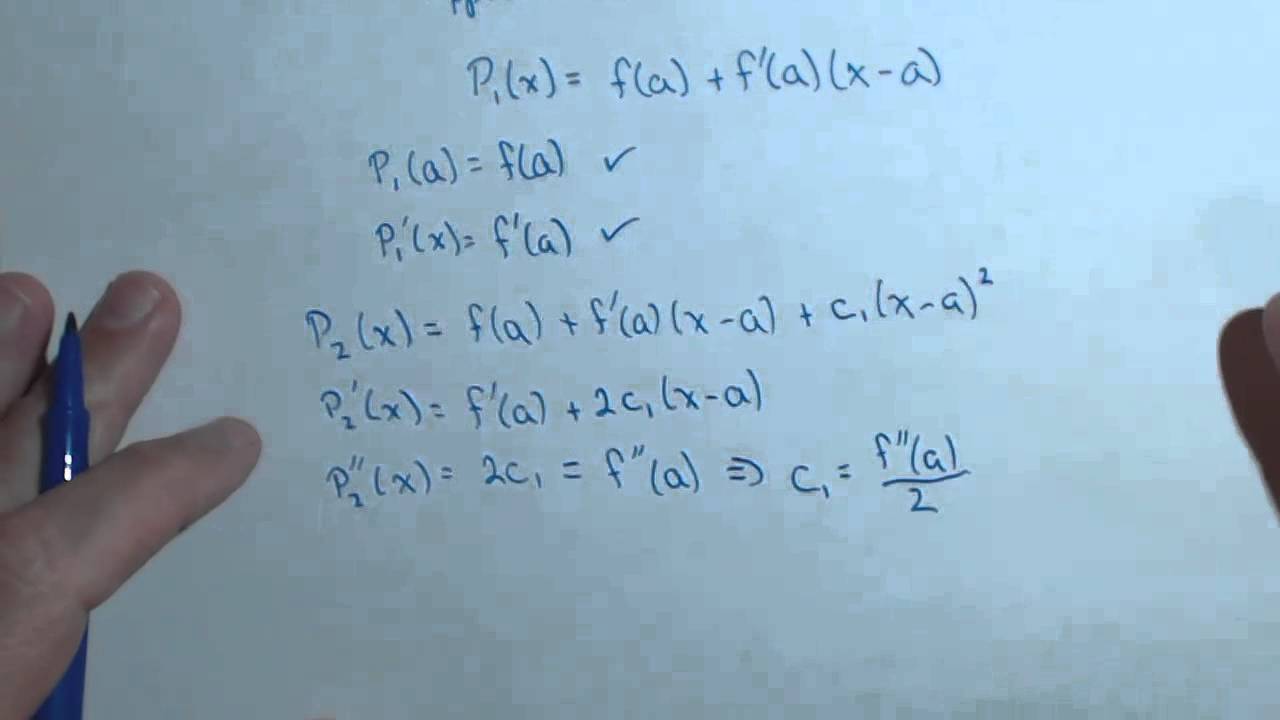 P₁(x) = f(a) + f'(a)(x-a)
P₁(a) = f(a) ✓
P₁'(x) = f'(a) ✓
P₂(x) = f(a) + f'(a)(x-a) + c₁(x-a)²
P₂'(x) = f'(a) + 2c₁(x-a)
P₂''(x) = 2c₁ = f''(a) ⇒ c₁ = f''(a)/2